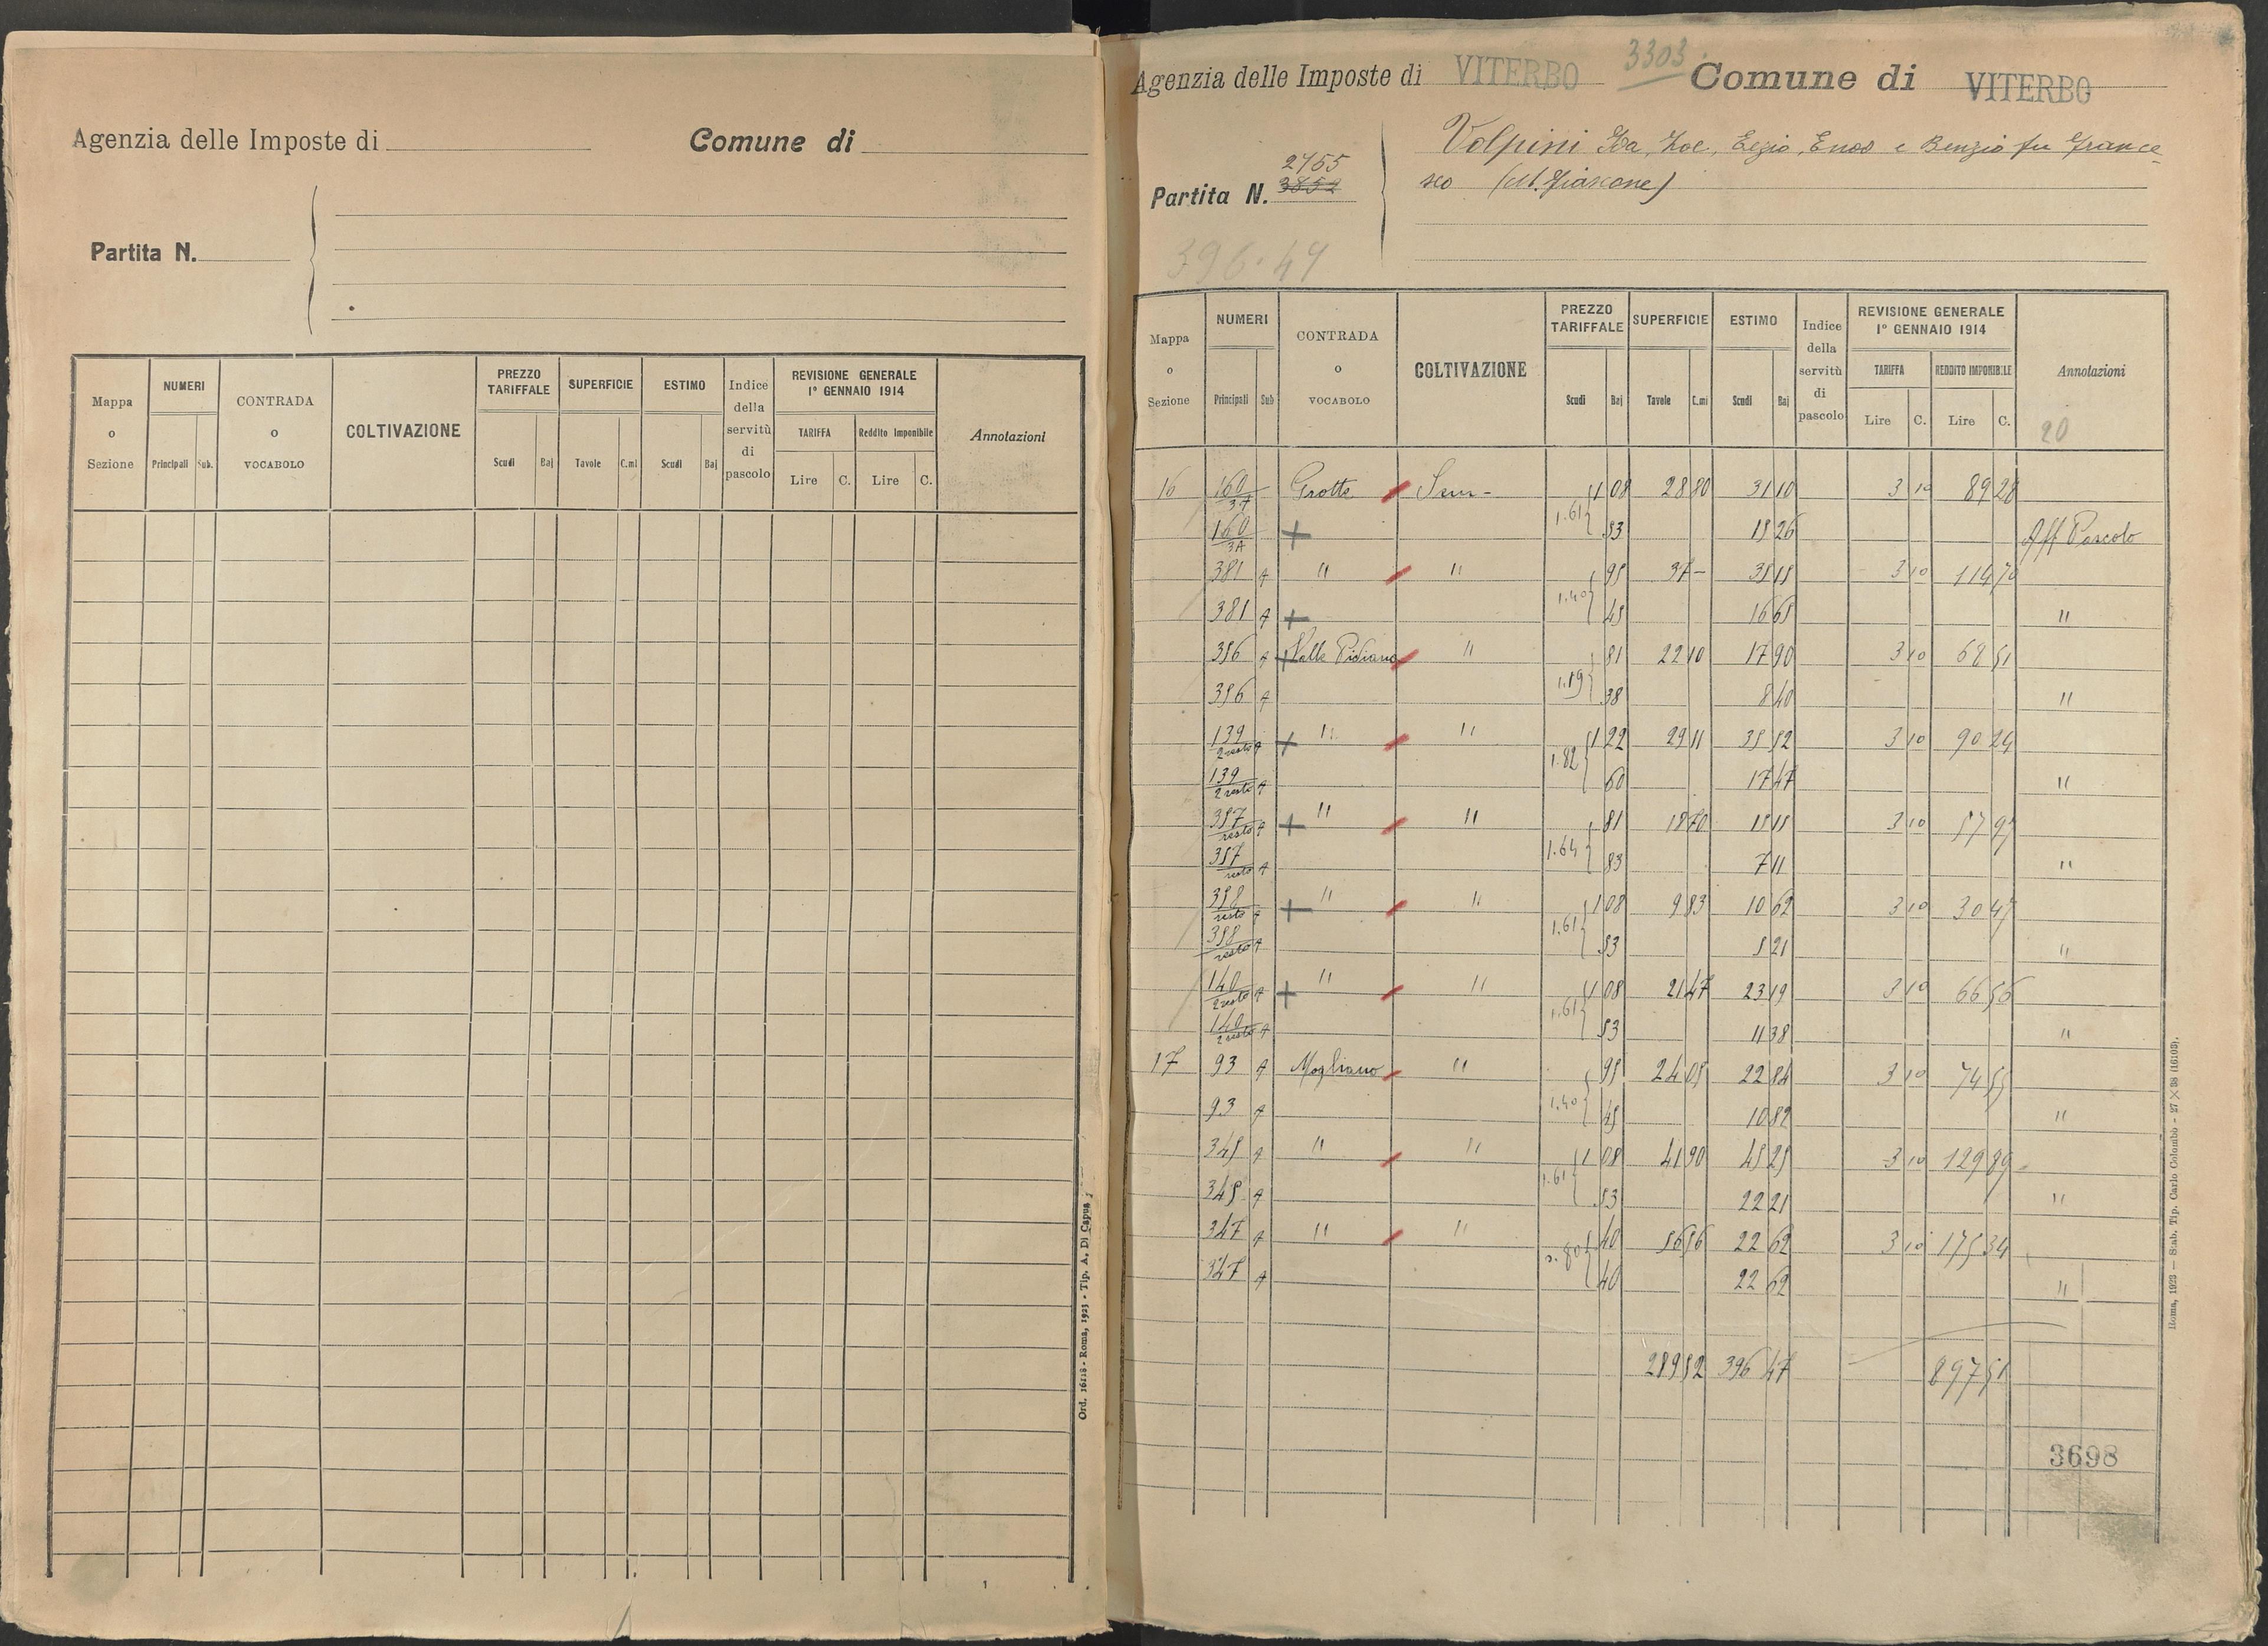 Agenzia delle Imposte di
Comune di
Partita N.
Mappa o Sezione
NUMERI
Principali Sub.
CONTRADA o VOCABOLO
COLTIVAZIONE
PREZZO TARIFFALE
Scudi Baj
SUPERFICIE
Tavole C.mi
ESTIMO
Scudi Baj
Indice della servitù di pascolo
REVISIONE GENERALE
1º GENNAIO 1914
TARIFFA Reddito Imponibile
Lire C. Lire C.
Annotazioni
Ord. 16118 - Roma, 1923 - Tip. A. Di Capua
1
3303
Agenzia delle Imposte di VITERBO Comune di VITERBO
2755
Partita N. 3852
Volpini Ida, Zoe, Ezio, Enos e Benzio fu France
sco (M. Fiascone)
396.47
Mappa o Sezione
NUMERI
Principali Sub
CONTRADA o VOCABOLO
COLTIVAZIONE
PREZZO TARIFFALE
Scudi Baj
SUPERFICIE
Tavole C.mi
ESTIMO
Scudi Baj
Indice della servitù di pascolo
REVISIONE GENERALE
1º GENNAIO 1914
TARIFFA REDDITO IMPONIBILE
Lire C. Lire C.
Annotazioni
20
16 160/37 Grotte Sem- 1 08 28 80 31 10 3 10 89 28
160/3A + 1.61 53 15 26 Aff Pascolo
381 A " " 95 37 - 35 15 3 10 114 70
381 A + 1.40 45 16 65 "
356 A + Valle Pidiana " 81 22 10 17 90 3 10 68 51
356 A 1.19 38 8 40 "
139/2 resto A + " " 1 22 29 11 35 52 3 10 90 24
139/2 resto A 1.82 60 17 47 "
357/resto A + " " 81 18 70 15 15 3 10 57 97
357/resto A 1.64 83 7 11 "
358/resto A + " " 1 08 9 83 10 62 3 10 30 47
358/resto A 1.61 53 5 21 "
140/2 resto A + " " 1 08 21 47 23 19 3 10 66 56
140/2 resto A 1.61 53 11 38 "
17 93 A Mogliano " 95 24 05 22 84 3 10 74 55
93 A 1.40 45 10 82 "
345 A " " 1 08 41 90 45 25 3 10 129 89
345 A 1.61 53 22 21 "
347 A " " 40 56 56 22 62 3 10 175 34
347 A 0.80 40 22 62 "
289 52 396 47 897 51
3698
Roma, 1923 — Stab. Tip. Carlo Colombo - 27 × 38 (16103).